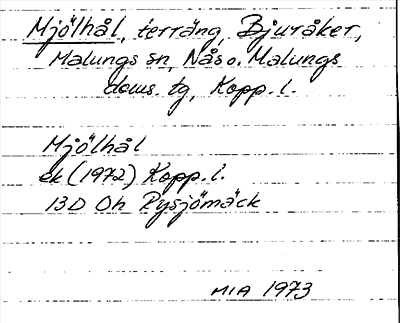 Mjölhål, terräng, Bjuråker,
Malungs sn, Nås o. Malungs
doms. tg, Kopp. l.
Mjölhål
ek (1972) Kopp. l.
13D 0h Rysjömäck
MIA 1973